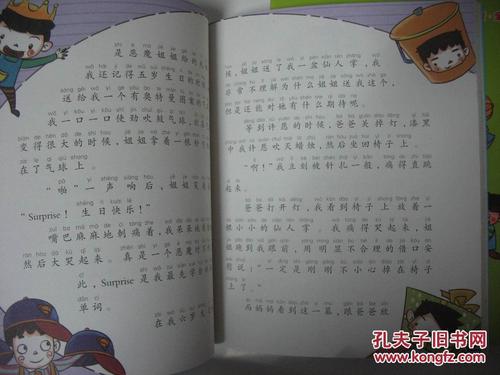 是恶魔姐姐
我还记得五岁生日的
送给我一个有奥特曼图案的
我一口一口使劲吹鼓气球
变得很大的时候，姐姐拿着一根
在了气球上。
“啪”一声响后，姐姐
“Surprise！生日快乐！”
嘴巴麻麻地刺痛着，我呆呆
然后大哭起来。真是一个恶魔
此，Surprise 是我最先学会
单词。
在我六岁
候，姐姐送了我一盆仙人掌，我
非常不理解为什么姐姐送我这个，
但是还能对她有什么期待呢。
等到许愿的时候，爸爸关掉灯，漆黑
中我许愿吹灭蜡烛，然后坐回椅子上。
“啊！”我立刻被针扎一般，痛得直跳
起来。
爸爸打开灯，我看到椅子上放着一
小小的仙人掌。我痛得哭起来，姐
姐跑到我跟前，用明显不合理的借口安
慰说：一定是刚刚不小心掉在椅子
上了。
而妈妈看到这一幕，跟爸爸放
孔夫子旧书网
www.kongfz.com